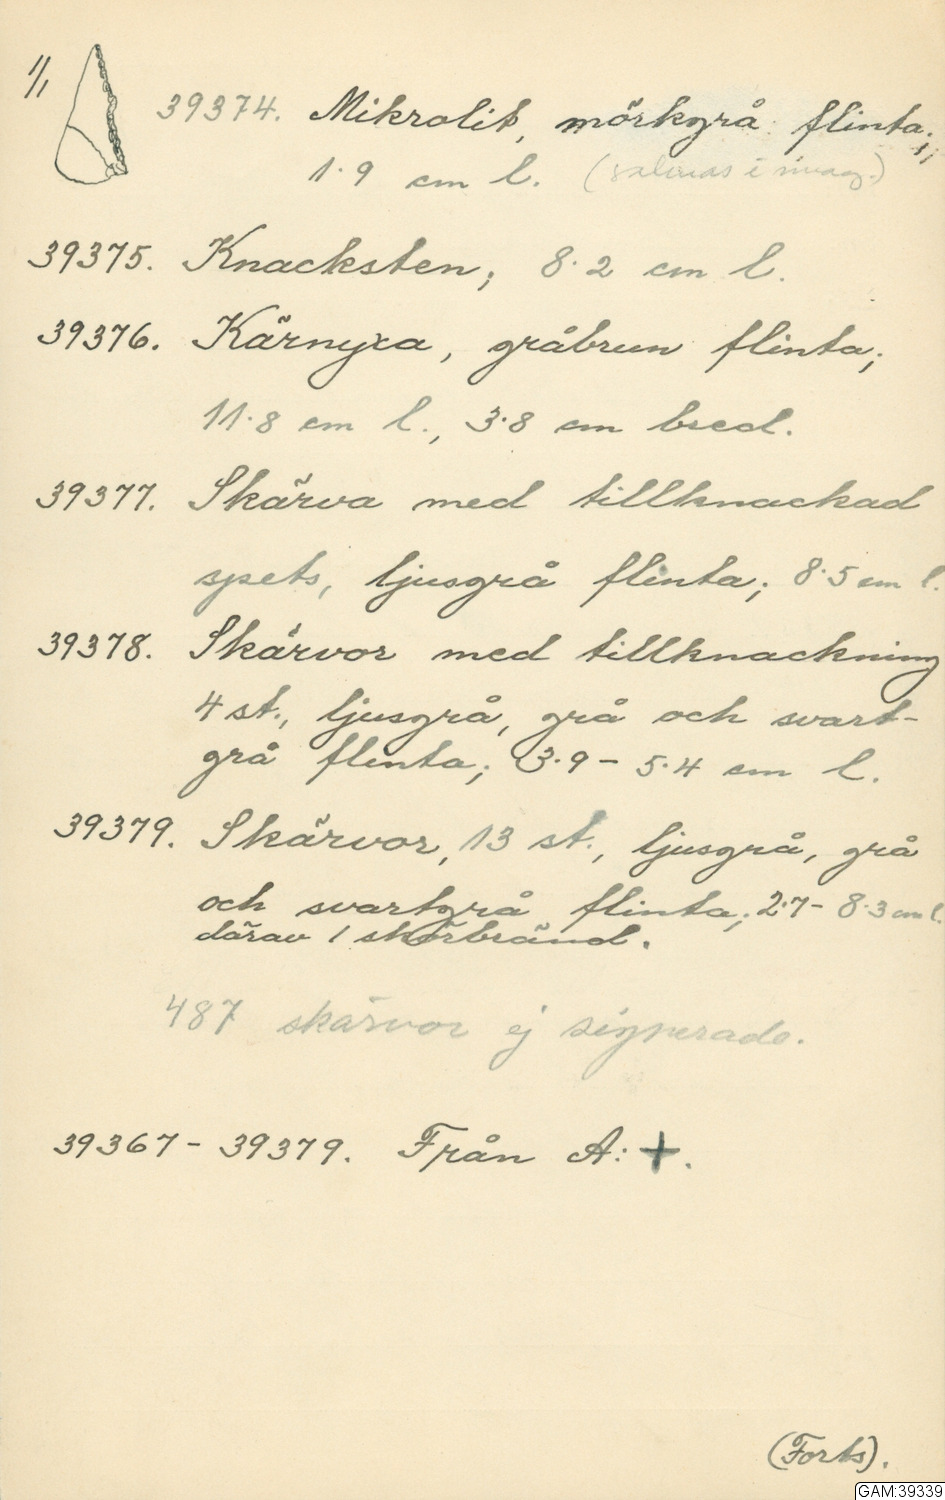 1/1
39374. Mikrolit, mörkgrå flinta;
1.9 cm l. (saknas i
39375. Knacksten; 8.2 cm l.
39376. Kärnyxa, gråbrun flinta;
11.8 cm l., 3.8 cm bred.
39377. Skärva med tillknackad
spets, ljusgrå flinta; 8.5 cm l.
39378. Skärvor med tillknackning
4 st., ljusgrå, grå och svart-
grå flinta; 3.9 - 5.4 cm l.
39379. Skärvor, 13 st., ljusgrå, grå
och svartgrå flinta; 2.7 - 8.3 cm l.
därav 1 skörbränd.
487 skärvor ej signerade.
39367 - 39379. Från A: +.
(Forts).
GAM:39339